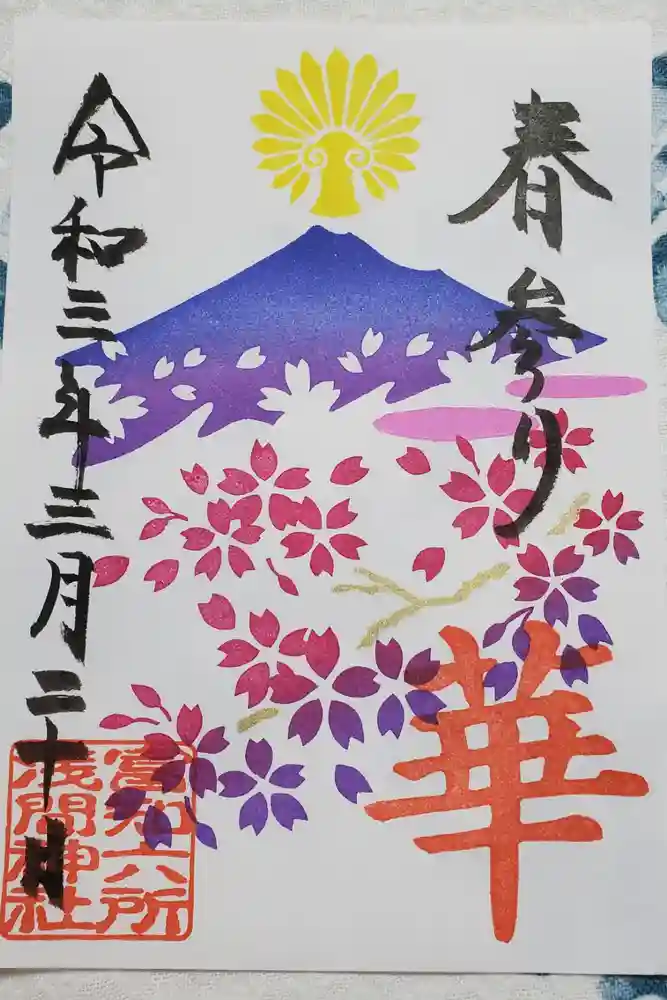 春参り
華
令和三年三月二十日
富知六所
浅間神社